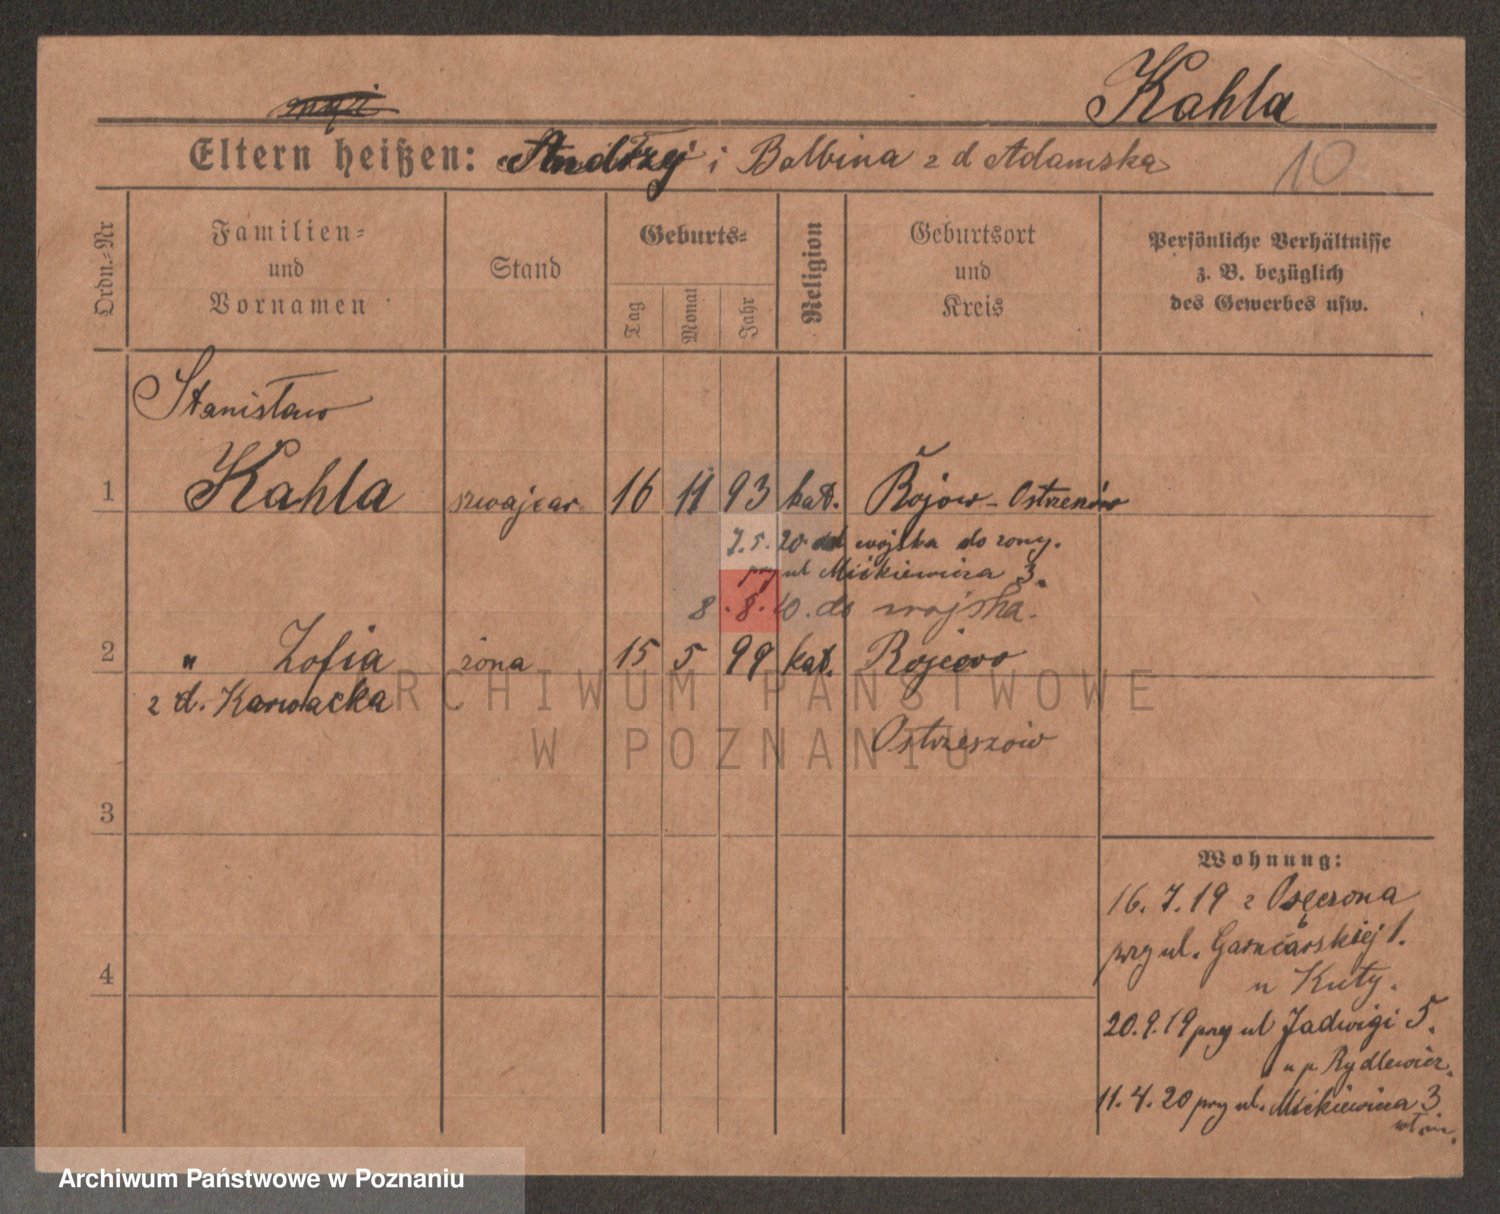 Kahla
Eltern heißen: Andrzej i Balbina z d Adamska
10
Ordn.-Nr
Familien- und Vornamen
Stand
Geburts-
Tag
Monat
Jahr
Religion
Geburtsort und Kreis
Persönliche Verhältnisse
z. B. bezüglich
des Gewerbes usw.
Stanisław
1 Kahla szwajcar. 16 11 93 kat. Rojow - Ostrzeszów
7.5.20 od wojska do zony.
przy ul Mickiewicza 3.
8.8.20. do wojska.
2 " Zofia żona 15 5 99 kat. Rojewo
z d. Karwacka
Ostrzeszów
3
4
Wohnung:
16.7.19 z
przy ul. Garncarskiej 1.
u Kuty.
20.9.19 przy ul Jadwigi 5.
u p Rydlewicz.
11.4.20 przy ul. Mickiewicza 3
ARCHIWUM PAŃSTWOWE
W POZNANIU
Archiwum Państwowe w Poznaniu